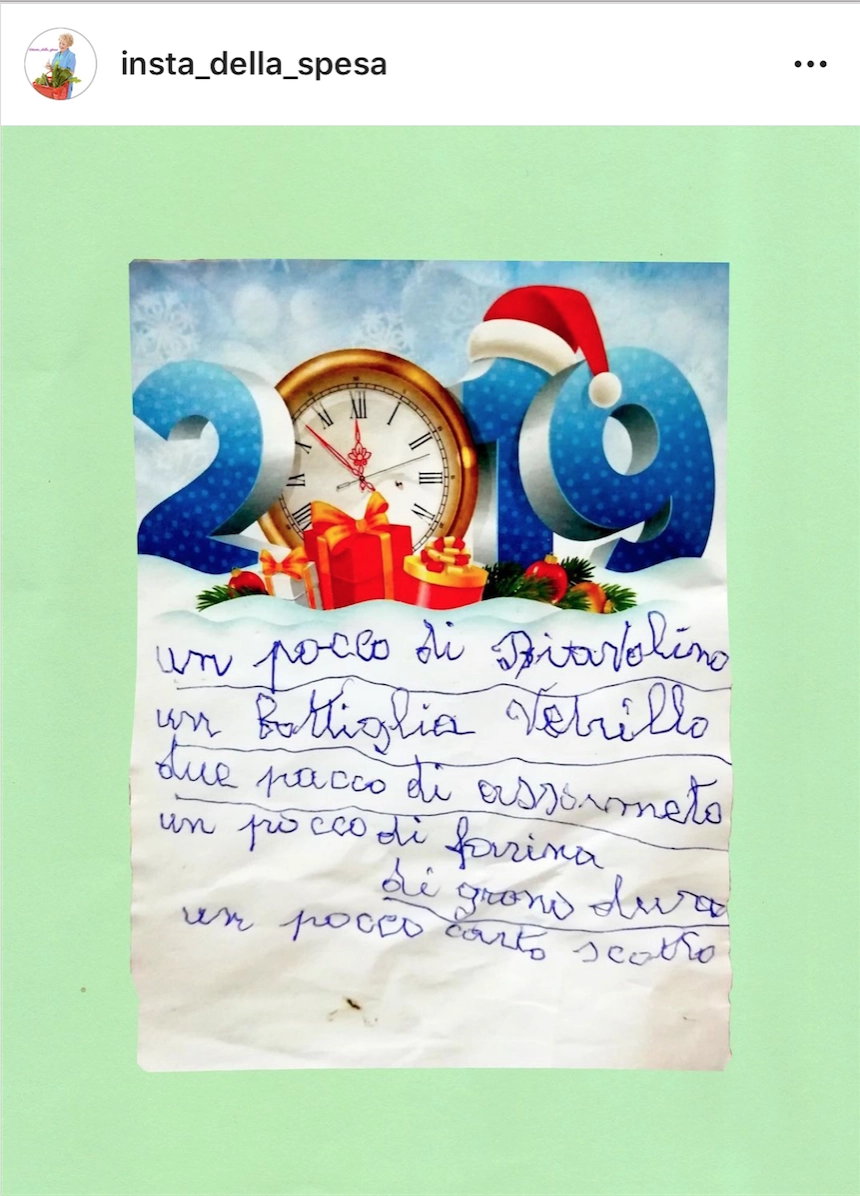 insta_della_spesa
2019
XII
I
II
III
VIII
IX
X
XI
un pacco di Bitavolino
un Bottiglia Vetrillo
due pacco di assormeto
un pacco di farina
di grano dura
un pacco carta scotto